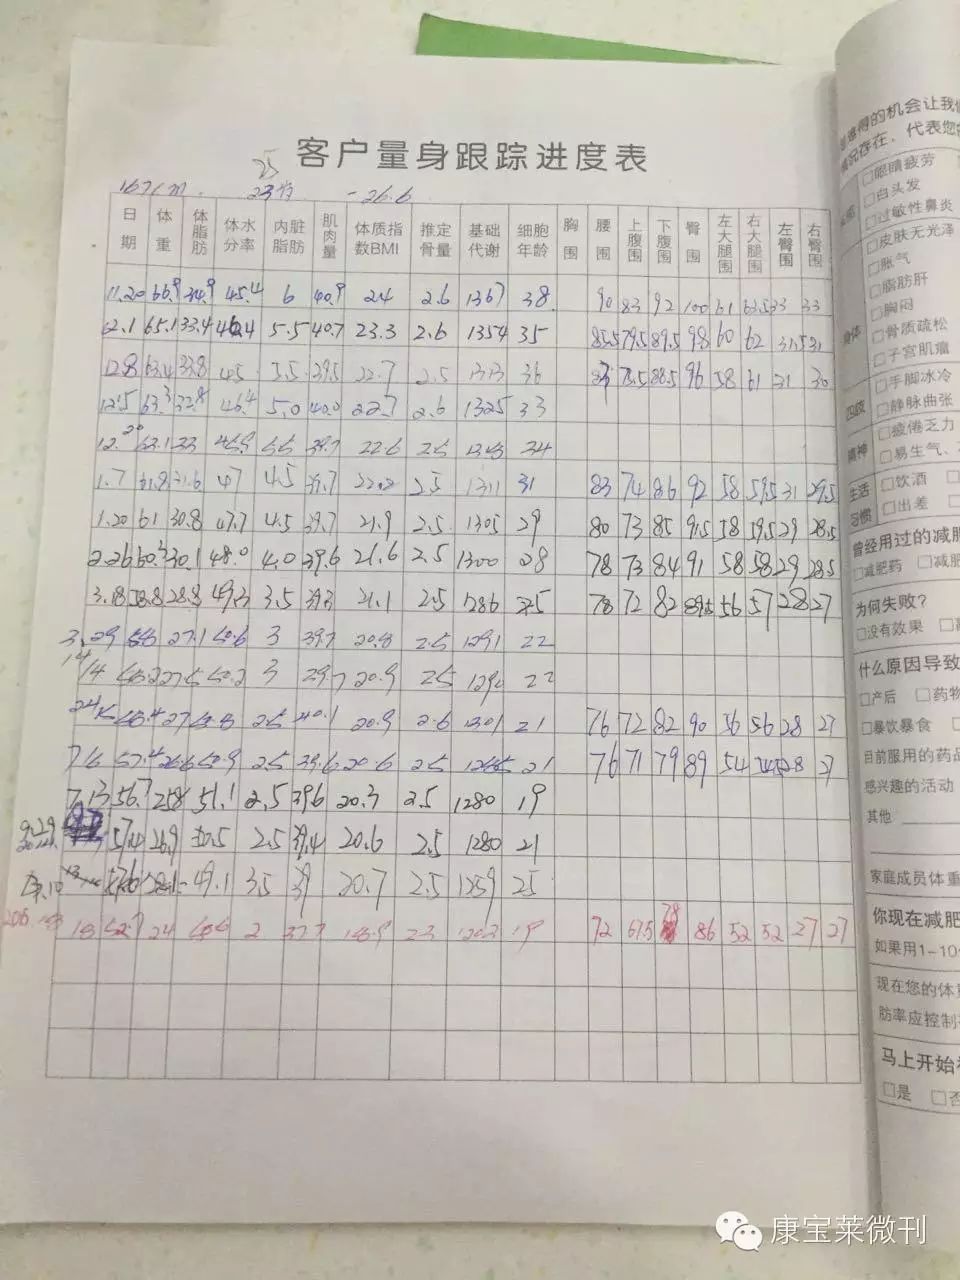 客户量身跟踪进度表
25
167cm. 23岁 -26.6
日期 体重 体脂肪 体水分率 内脏脂肪 肌肉量 体质指数BMI 推定骨量 基础代谢 细胞年龄 胸围 腰围 上腹围 下腹围 臀围 左大腿围 右大腿围 左臀围 右臀围
11.20 66.9 34.9 45.4 6 40.9 24 2.6 1367 38 90 83 92 100 61 63.5 33 33
12.1 65.1 33.4 46.4 5.5 40.7 23.3 2.6 1354 35 85.5 79.5 89.5 98 60 62 31.5 31
12.8 63.4 33.8 45 5.5 39.5 22.7 2.5 1313 36 78.5 88.5 96 58 61 31 30
12.5 63.3 32.8 46.4 5.0 40.0 22.7 2.6 1325 33
12.20 63.1 33 39.7 22.6 2.5 34
1.7 61.8 31.6 47 4.5 39.7 22.2 2.5 1311 31 83 74 86 92 58 59.5 31 29.5
1.20 61 30.8 47.7 4.5 39.7 21.9 2.5 1305 29 80 73 85 91.5 58 59.5 29 28.5
2.26 60.3 30.1 48.0 4.0 39.6 21.6 2.5 1300 28 78 73 84 91 58 58 29 28.5
3.18 58.8 28.8 49.3 3.5 39.3 21.1 2.5 1286 25 78 72 82 89.5 56 57 28 27
3.29 58 27.1 50.6 3 39.7 20.8 2.5 1291 22
14/4 58.2 27.5 50.2 3 39.7 20.9 2.5 1290 22
58.4 27 2.5 40.1 20.9 2.6 1301 21 76 72 82 90 56 56 28 27
7.6 57.4 26.6 50.9 2.5 39.6 20.6 2.5 21 76 71 79 89 54 28 27
7.13 56.7 51.1 2.5 39.6 20.3 2.5 1280 19
57.4 26.9 50.5 2.5 39.4 20.6 2.5 1280 21
57.6 28.1 49.1 3.5 39 20.7 2.5 1259 25
18 52.7 24 2 37.7 18.9 2.3 1202 19 72 67.5 78 86 52 52 27 27
得的机会让我
情况存在、代表您
□眼睛疲劳
□白头发
□过敏性鼻炎
□皮肤无光泽
□胀气
□脂肪肝
□胸闷
□骨质疏松
□子宫肌瘤
身体
□手脚冰冷
□静脉曲张
四肢
□疲倦乏力
□易生气、
精神
生活习惯
□饮酒
□出差
曾经用过的减肥
□减肥药 □减肥
为何失败？
□没有效果
什么原因导致
□产后 □药物
□暴饮暴食
目前服用的药品
感兴趣的活动
其他
家庭成员体重
你现在减肥
如果用1-10
现在您的体
肪率应控制
马上开始
□是 □否
康宝莱微刊